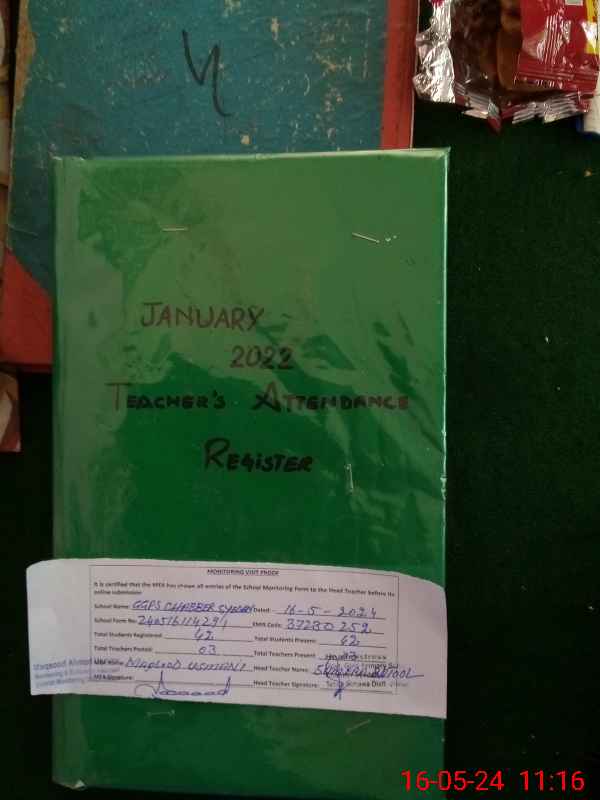 JANUARY
2022
TEACHER'S ATTENDANCE
REGISTER
MONITORING VISIT PROOF
It is certified that the MEA has shown all entries of the School Monitoring Form to the Head Teacher before its
online submission
School Name: GGPS Dated: 16-5-2024
School Form No: EMIS Code: 37230252
Total Students Registered: 62 Total Students Present: 62
Total Teachers Posted: 03 Total Teachers Present: 03
MEA Name: Maqsood Head Teacher Name:
MEA Signature: Head Teacher Signature:
16-05-24 11:16